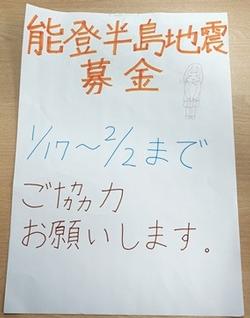 能登半島地震
募金
1/17～2/2まで
ご協力
お願いします。